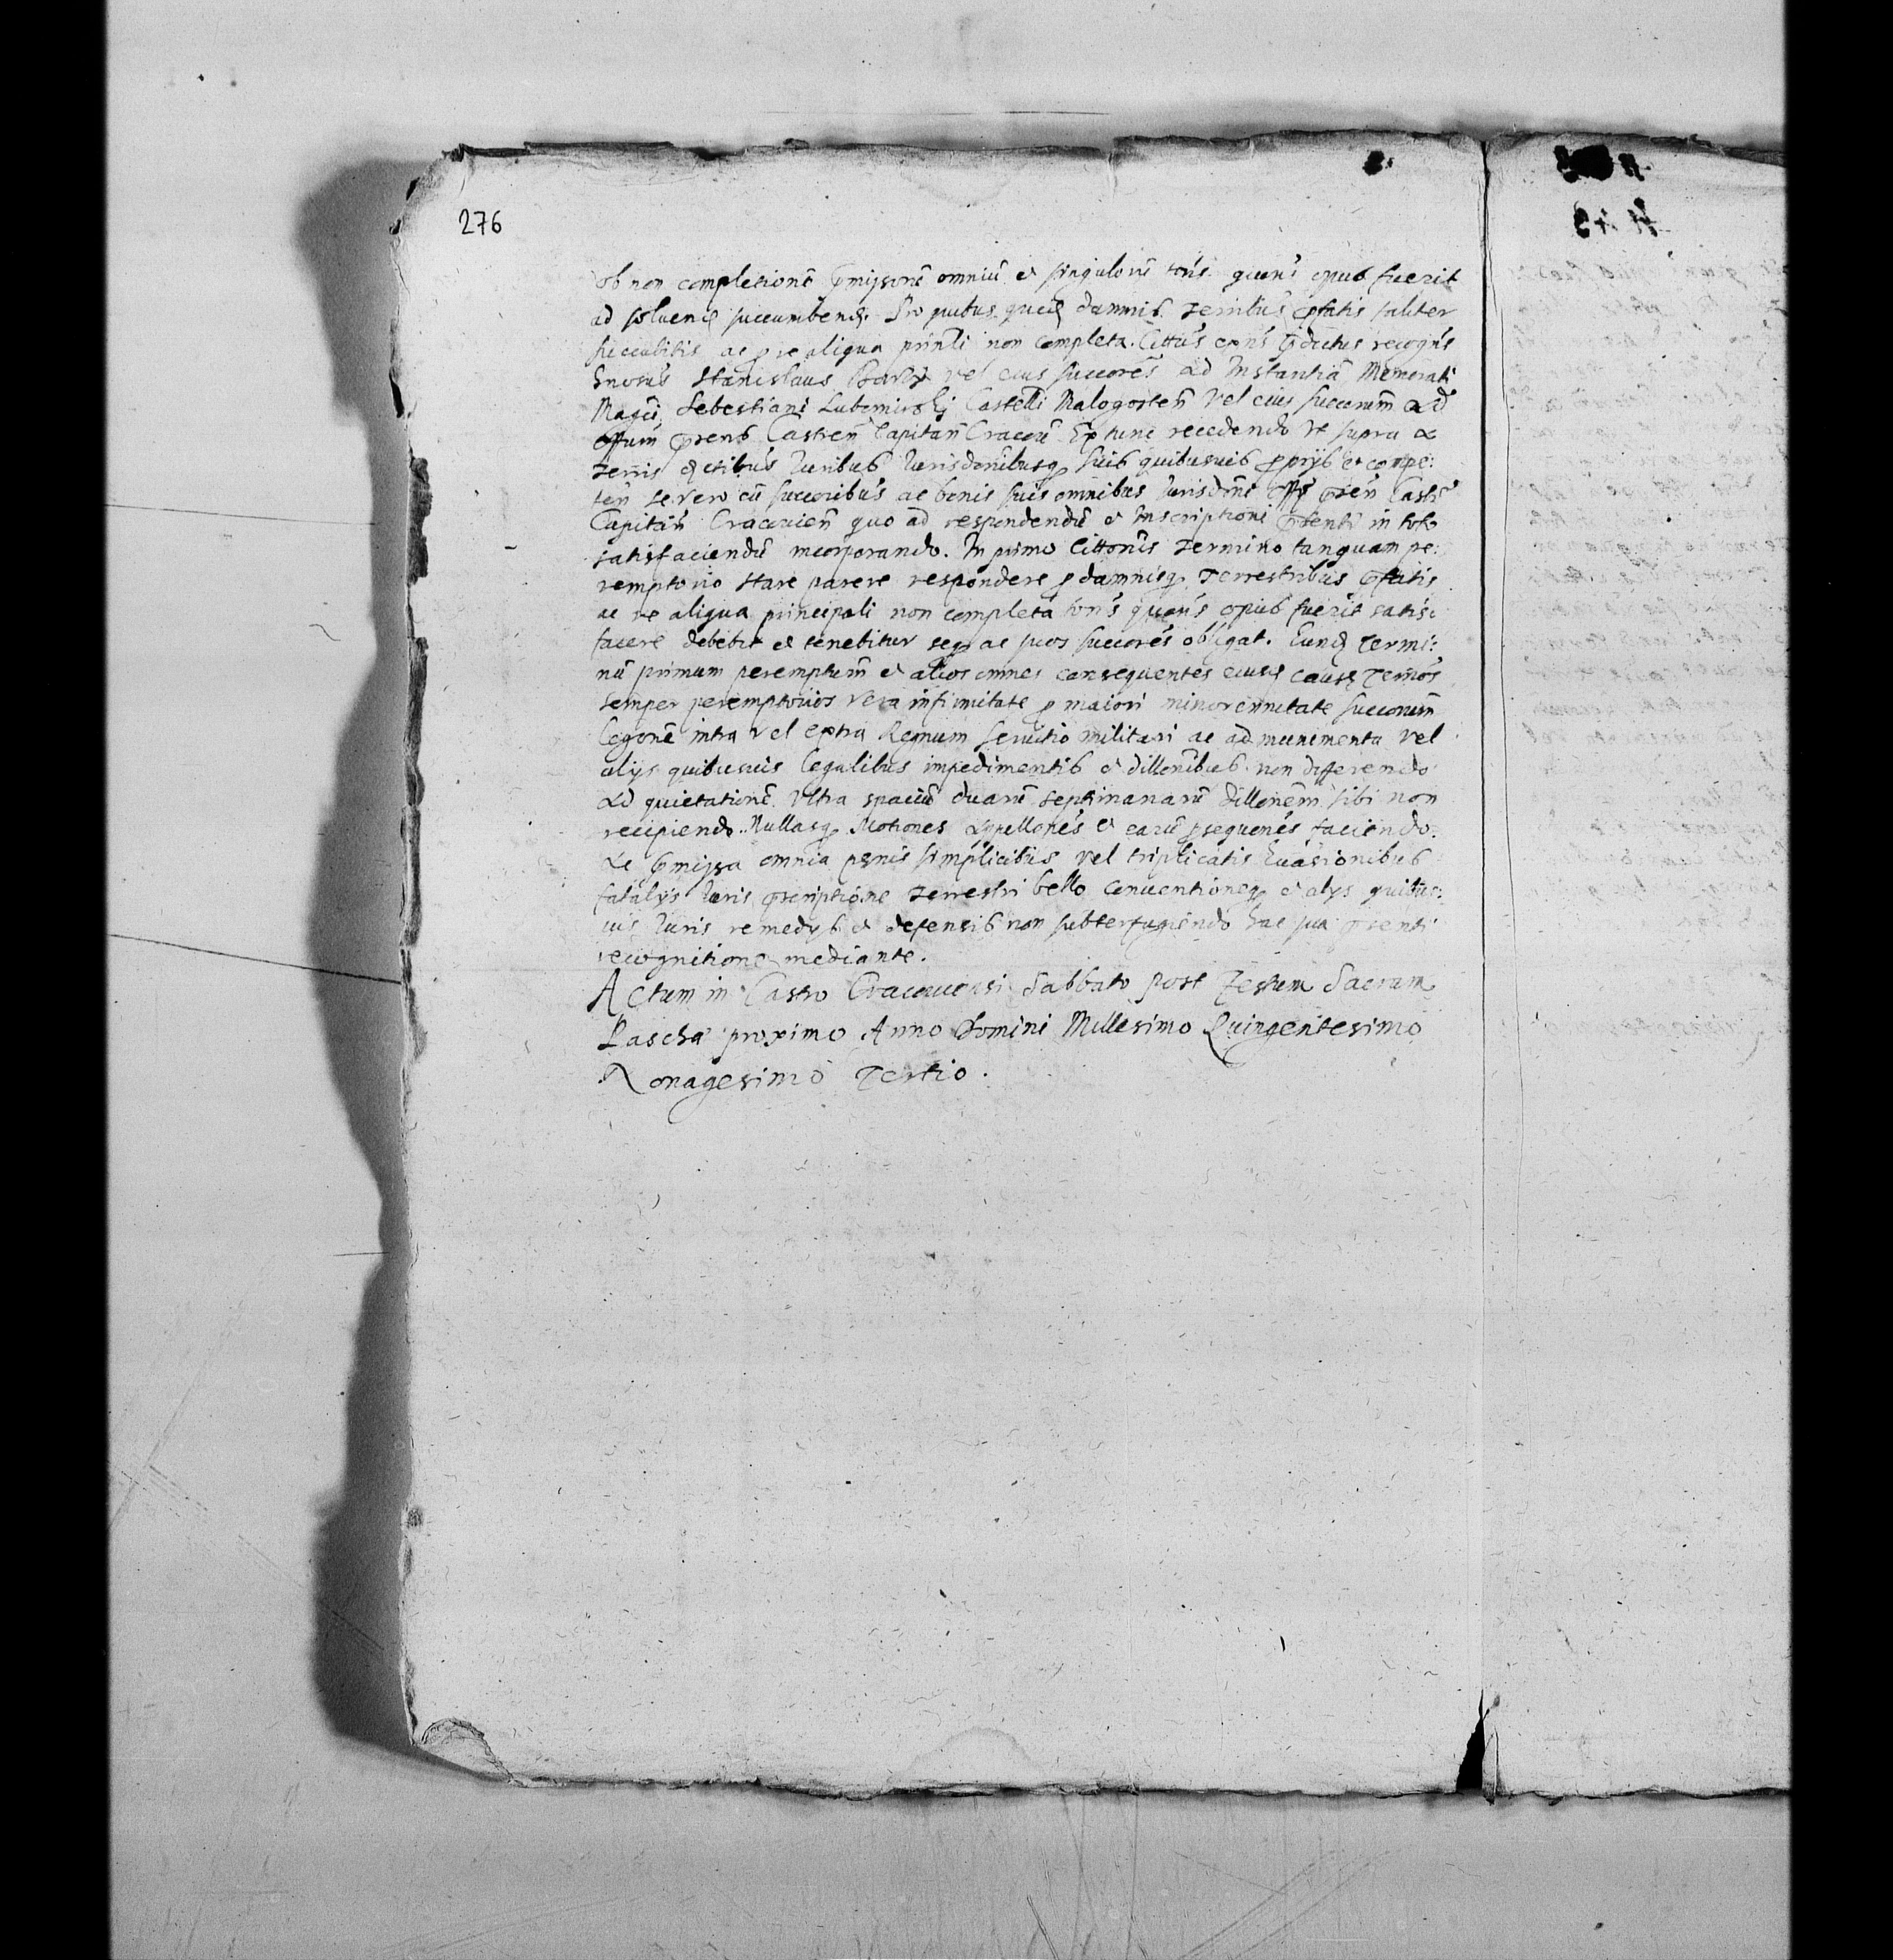 276
ob non completionē p̄missorū omniū et singulorū toñs quoñs opus fuerit
ad soluend succumbend. Pro quibus quid damnis terribus p̄fatis taliter
succubitis ac p re aliqua prinłi non completa. Cittūs exñs p̄dictus recogñs
Gnosus Stanislaus vel eius succores ad Instantiā Memorati
Magci Sebestiani Lubomirskj Castelli Malogosteñ vel eius succorum ad
offum p̄sens Castreñ Capitañ Cracouī Ex tunc recedendo vt supra a
terris Juribus Jurisdonibusq suis quibusuis pprijs et compe:
teñ se vero cū succoribus ac bonis suis omnibus Jurisdōni offi p̄señ Castr
Capitañ Cracouieñ quo ad respondendū et Inscriptioni p̄senti in toto
satisfaciendū incorporando. In primo Cittonis termino tanquam pe:
remptorio stare parere respondere p damnisq Terrestribus p̄fatis
ac re aliqua principali non completa toñs quoñs opus fuerit satis:
facere debebit et tenebitur seq ac suos succores obligat. Eund Termi:
nū primum peremptum et alios omnes consequentes eiusd causę Termos
semper peremptorios vera infirmitate p maiori minorennitate succorum
Legonē intra vel extra Regnum seruitio militari ac ad munimenta vel
alijs quibusuis legalibus impedimentis et dillonibus non differendo
Ad quietationē Vltra spaciū duarū septimanarū dillonem sibi non
recipiendo. Nullasq Motiones Appellones et earū psequones faciendo.
Ac p̄missa omnia pęnis simplicibus vel triplicatis Euasionibus
fatalijs Juris p̄scriptione terrestri bello conuentioneq et alijs quibus:
uis Juris remedijs et defensis non subterfugiendo hac sua p̄senti
recognitione mediante.
Actum in Castro Cracouiensi Sabbato post Festum Sacrum
Pascha proximo Anno Domini Millesimo Quingentesimo
Nonagesimo Tertio.